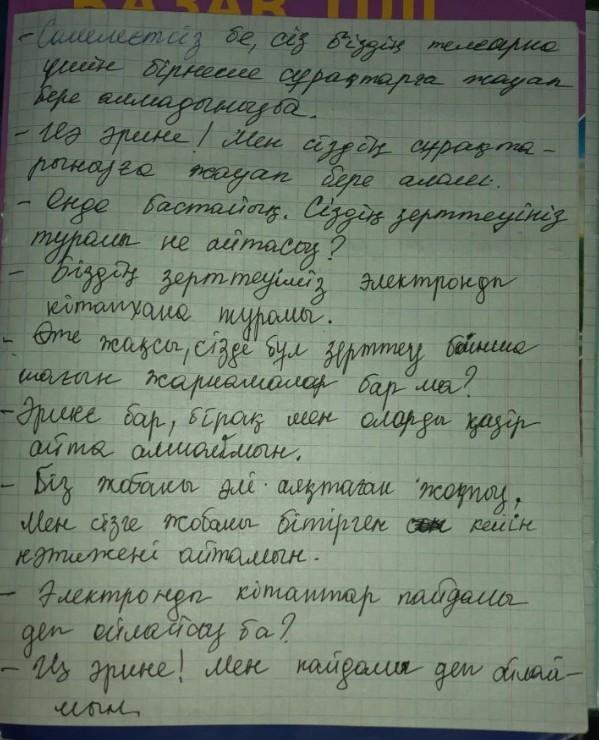 ҚАЗАҚ ТІЛІ
- Сәлеметсіз бе, сіз біздің телеарна
үшін бірнеше сұрақтарға жауап
бере алмадыңызба.
- Иә әрине! Мен сіздің сұрақта-
рыңызға жауап бере алам.
- Онда бастайық. Сіздің зерттеуіңіз
туралы не айтасыз?
- Біздің зерттеуіміз электронды
кітапхана туралы.
- Өте жақсы, сізде бұл зерттеу бойынша
шағын жарнамалар бар ма?
- Әрине бар, бірақ мен оларды қазір
айта алмаймын.
- Біз жобаны әлі аяқтаған жоқпыз.
Мен сізге жобаны бітірген кейін
нәтижені айтамын.
- Электронды кітаптар пайдалы
деп ойлайсыз ба?
- Иә әрине! Мен пайдалы деп ойлай-
мын.